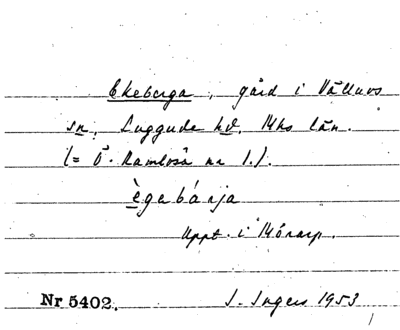 Ekeberga, gård i Välluvs
sn, Luggude hd, Mhs län.
(= Ö. Ramlösa nr 1.).
ègebárja
Uppt. i Mörarp.
Nr 5402. I. Ingers 1953